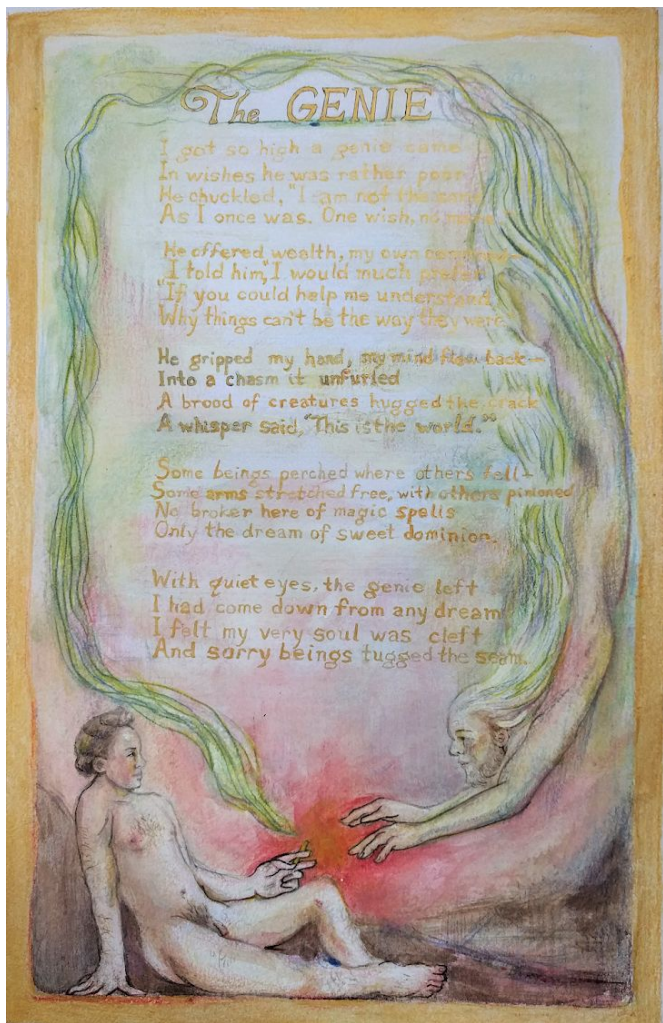 The GENIE
I got so high a genie came
In wishes he was rather poor
He chuckled, "I am not the same
As I once was. One wish, no more
He offered wealth, my own
I told him, "I would much prefer
"If you could help me understand
Why things can't be the way they were
He gripped my hand, my mind flew back—
Into a chasm it unfurled
A brood of creatures hugged the crack
A whisper said, "This is the world."
Some beings perched where others fell—
Some arms stretched free, with others pinioned
No broker here of magic spells
Only the dream of sweet dominion.
With quiet eyes, the genie left
I had come down from any dream
I felt my very soul was cleft
And sorry beings tugged the seam.